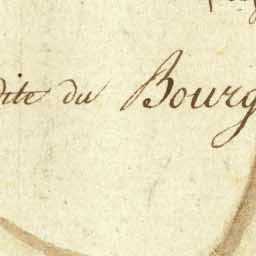 dite du Bourg